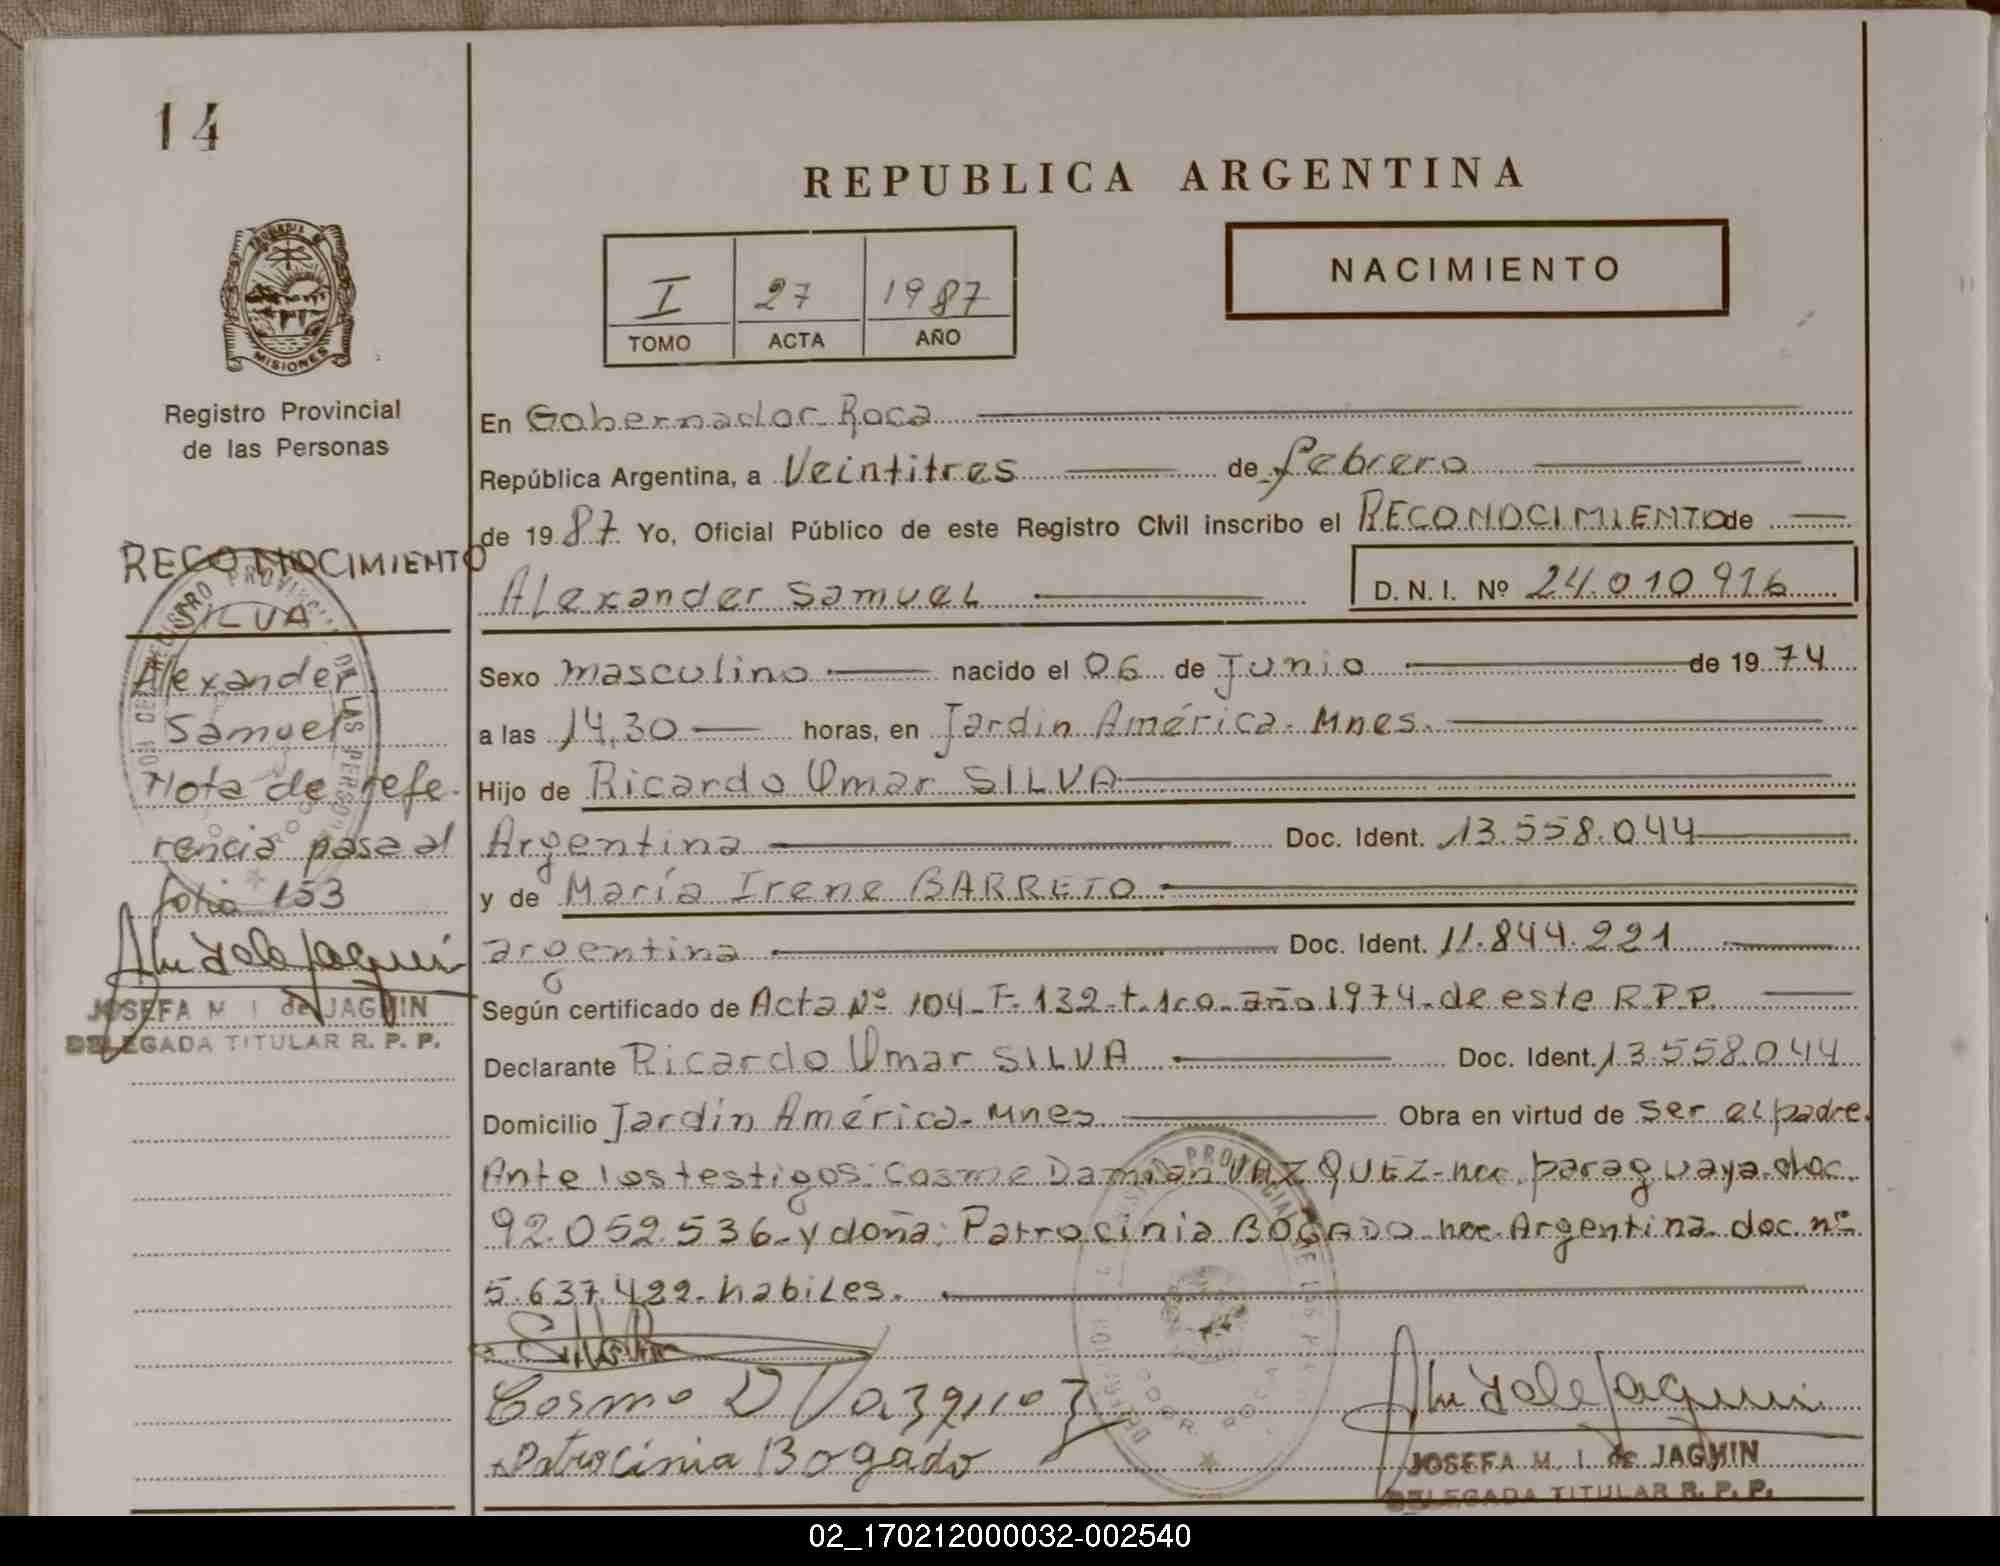 14
REPUBLICA ARGENTINA
NACIMIENTO
I 27 1987
TOMO ACTA AÑO
MISIONES
Registro Provincial
de las Personas
RECONOCIMIENTO
SILVA
Alexander
Samuel
Nota de refe-
rencia pasa al
folio 153
JOSEFA M. I. de JAGUIN
DELEGADA TITULAR R. P. P.
En Gobernador Roca
República Argentina, a Veintitres de febrero
de 1987 Yo, Oficial Público de este Registro Civil inscribo el RECONOCIMIENTO de
Alexander Samuel D.N.I. Nº 24.010.916
Sexo masculino nacido el 06 de Junio de 1974
a las 14,30 horas, en Jardín América. Mnes.
Hijo de Ricardo Omar SILVA
Argentina Doc. Ident. 13.558.044
y de María Irene BARRETO
argentina Doc. Ident. 11.844.221
Según certificado de Acta Nº 104-F.132-t.1ro-año 1974-de este R.P.P.
Declarante Ricardo Omar SILVA Doc. Ident. 13.558.044
Domicilio Jardín América-Mnes Obra en virtud de ser el padre.
Ante los testigos: Cosme Damian VAZQUEZ-nac. paraguaya-doc.
92.052.536-y doña: Patrocinia BOGADO-nac. Argentina-doc. nº
5.637.422-habiles.
Cosme D Vazquez
Patrocinia Bogado
JOSEFA M. I. de JAGUIN
DELEGADA TITULAR R. P. P.
02_170212000032-002540